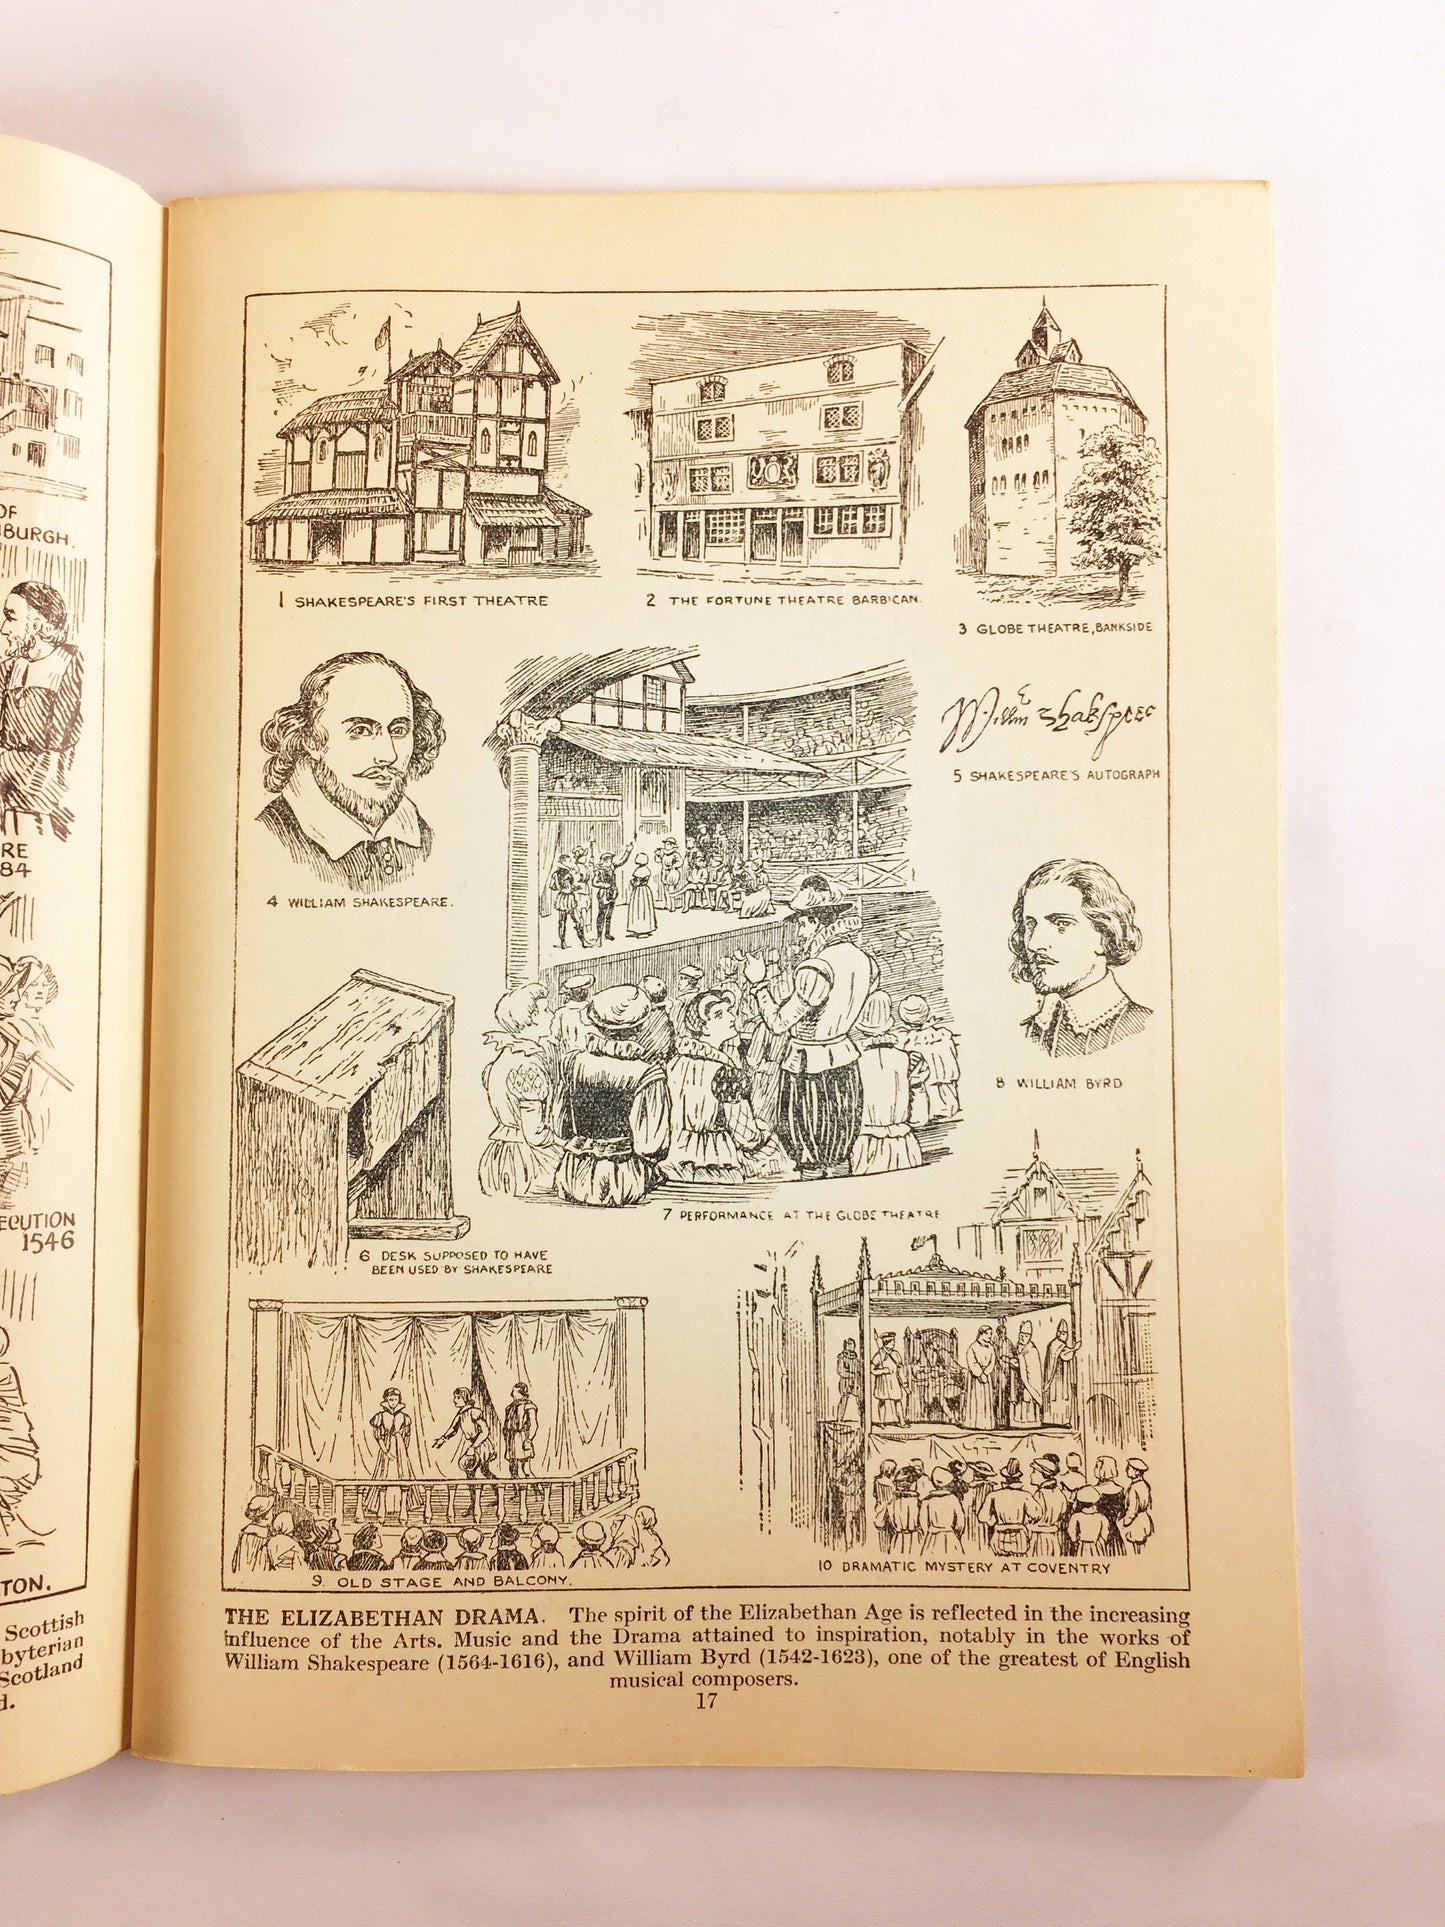 OF
IBURGH.
RE
84
ECUTION
1546
TON.
Scottish
byterian
Scotland
d.
1 SHAKESPEARE'S FIRST THEATRE
2 THE FORTUNE THEATRE BARBICAN.
3 GLOBE THEATRE, BANKSIDE
4 WILLIAM SHAKESPEARE.
5 SHAKESPEARE'S AUTOGRAPH
6 DESK SUPPOSED TO HAVE
BEEN USED BY SHAKESPEARE
7 PERFORMANCE AT THE GLOBE THEATRE
8 WILLIAM BYRD
9. OLD STAGE AND BALCONY.
10 DRAMATIC MYSTERY AT COVENTRY
THE ELIZABETHAN DRAMA. The spirit of the Elizabethan Age is reflected in the increasing
influence of the Arts. Music and the Drama attained to inspiration, notably in the works of
William Shakespeare (1564-1616), and William Byrd (1542-1623), one of the greatest of English
musical composers.
17